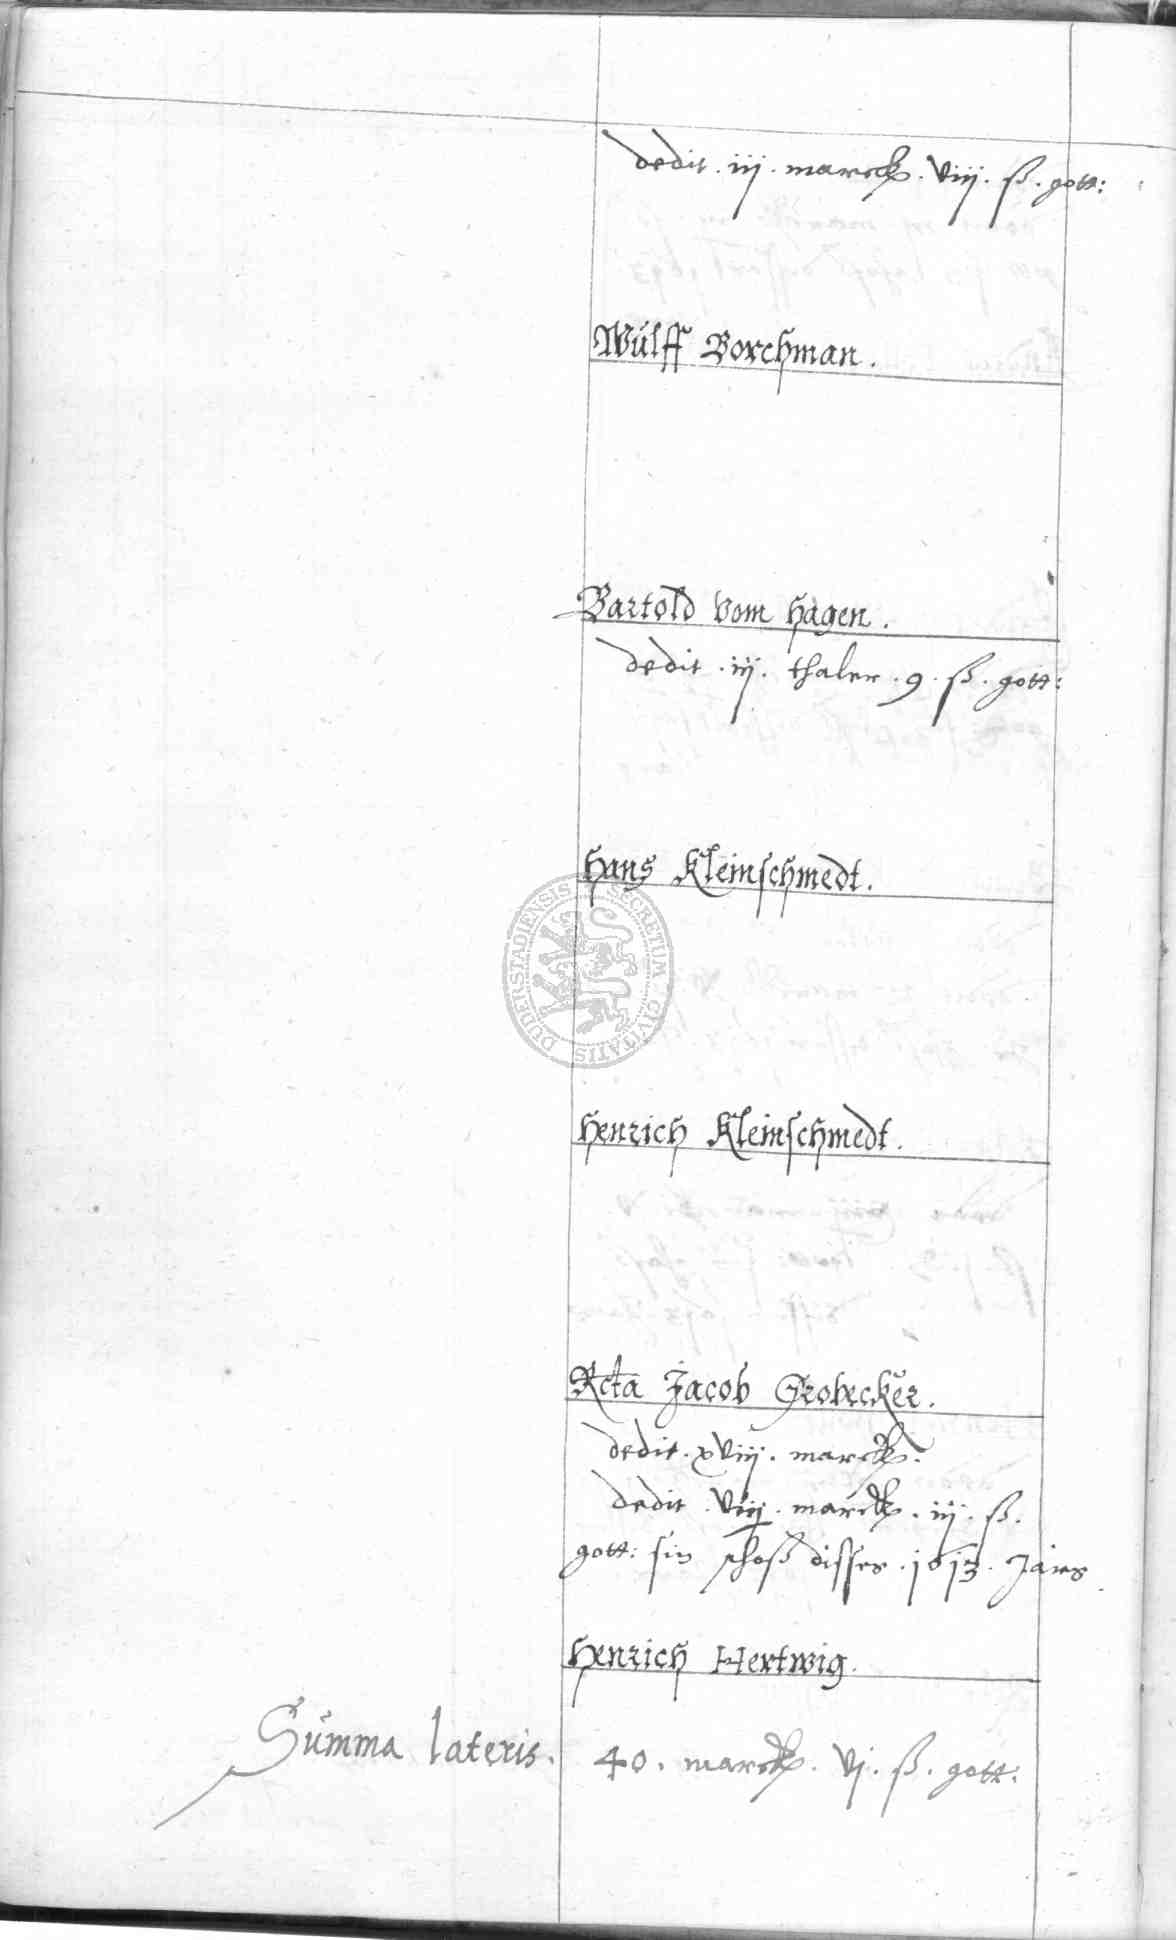 dedit . iij . marck . viij . ß . gott:
Wulff Borchman .
Bartold vom Hagen .
dedit . iij . thaler . 9 . ß . gott:
Hans Kleinschmedt .
DUDERSTADIENSIS SECRETUM CIVITATIS
Henrich Kleinschmedt .
Rcta Jacob Grobecker .
dedit . xviij . marck .
dedit . viij . marck . iij . ß .
gott: sin schoß disses . 1613 . Jars
Henrich Hertwig .
Summa lateris . 40 . marck . vj . ß . gott: